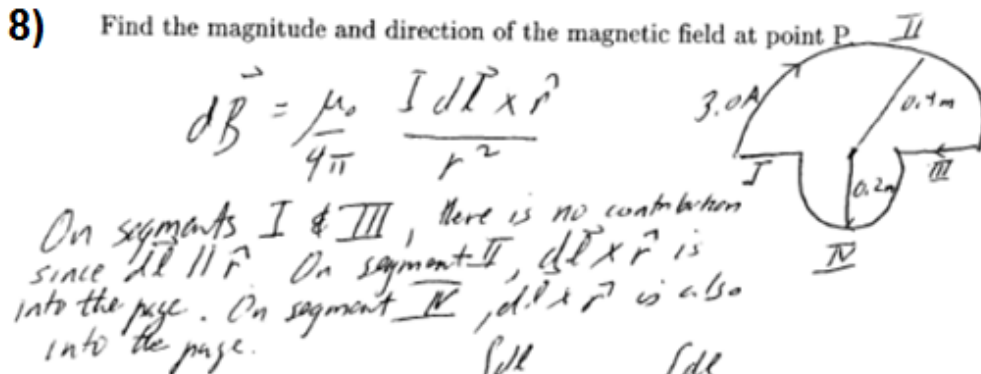 8) Find the magnitude and direction of the magnetic field at point P.
II
3.0A
0.4m
I
III
0.2m
IV
dB⃗ = μ₀/4π I dl⃗ x r̂ / r²
On segments I & III, there is no contribution
since dl⃗ || r̂ On segment II, dl⃗ x r̂ is
into the page. On segment IV, dl x r̂ is also
into the page.
∫dl ∫dl